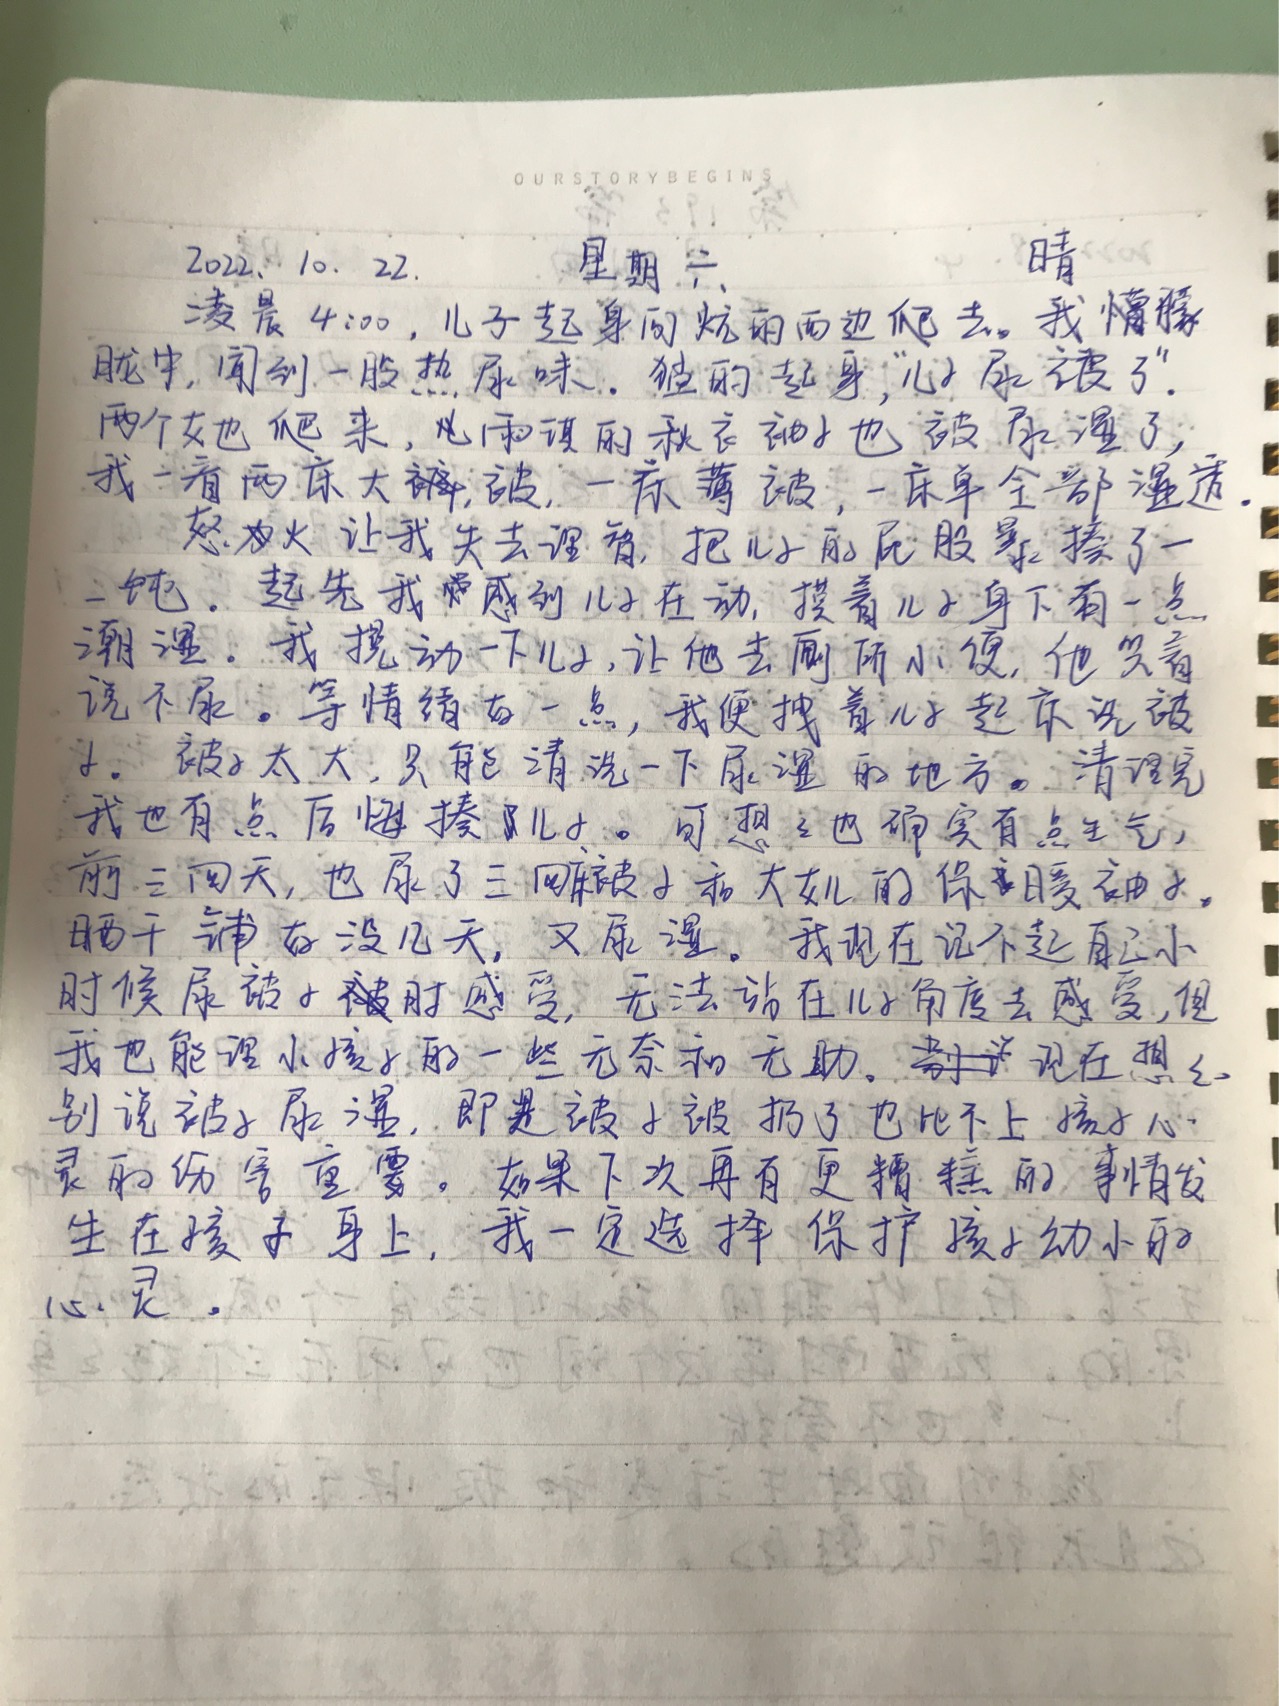 OURSTORYBEGINS
2022. 10. 22. 星期六 晴
凌晨4:00,儿子起身向炕的西边爬去。我懵朦
胧中,闻到一股热尿味。猛的起身,"儿子尿被了".
两个女也爬来,雨琪的秋衣袖子也被尿湿了,
我一看两床大被,一床薄被,一床单全部湿透.
怒火让我失去理智,把儿子的屁股暴揍了一
二顿。起先我感到儿子在动,摸着儿子身下有一点
潮湿。我挠动一下儿子,让他去厕所小便,他笑着
说不尿。等情绪好一点,我便拽着儿子起床洗被
子。被子太大,只能清洗一下尿湿的地方。清理完
我也有点后悔揍儿子。可想想也确实有点生气,
前三四天,也尿了三床被子和大女儿的保暖袖子。
晒干铺好没几天,又尿湿。我现在记不起自己小
时候尿被子时感受,无法站在儿子角度去感受,但
我也能理小孩子的一些无奈和无助。现在想想
别说被子尿湿,即是被子被扔了也比不上孩子心
灵的伤害重要。如果下次再有更糟糕的事情发
生在孩子身上,我一定选择保护孩子幼小的
心灵。